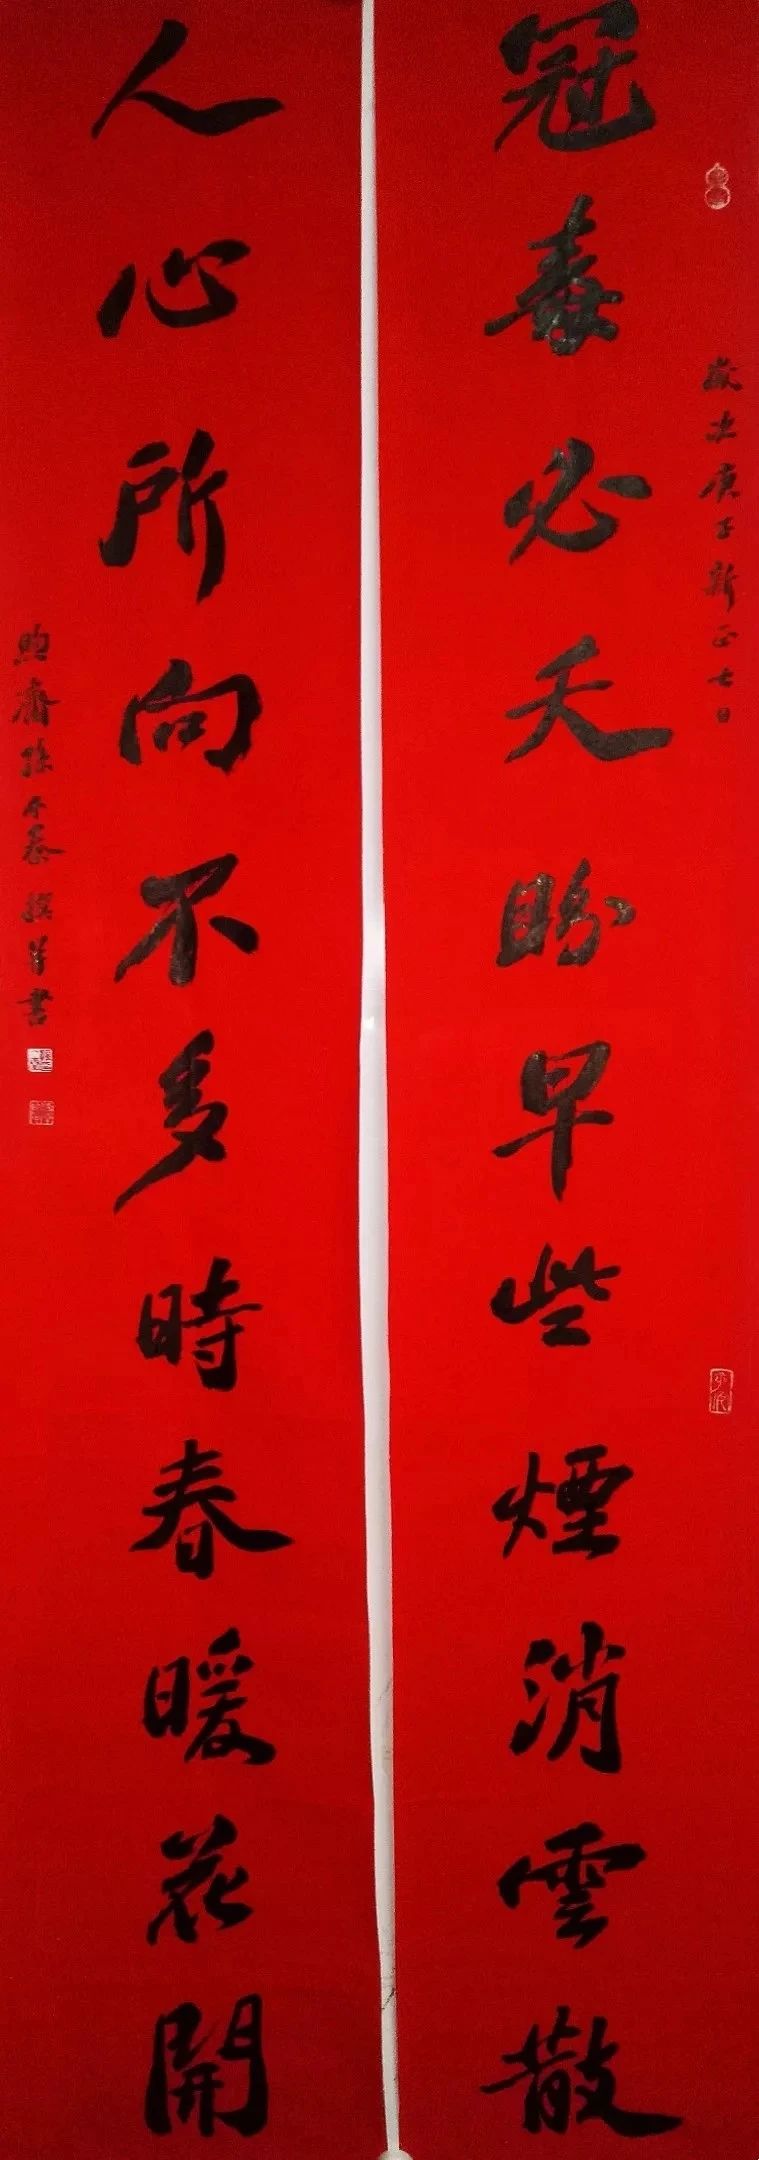 歲次庚子新正七日
冠毒必夭盼早些煙消雲散
人心所向不多時春暖花開
煦齋孫不慕撰并書